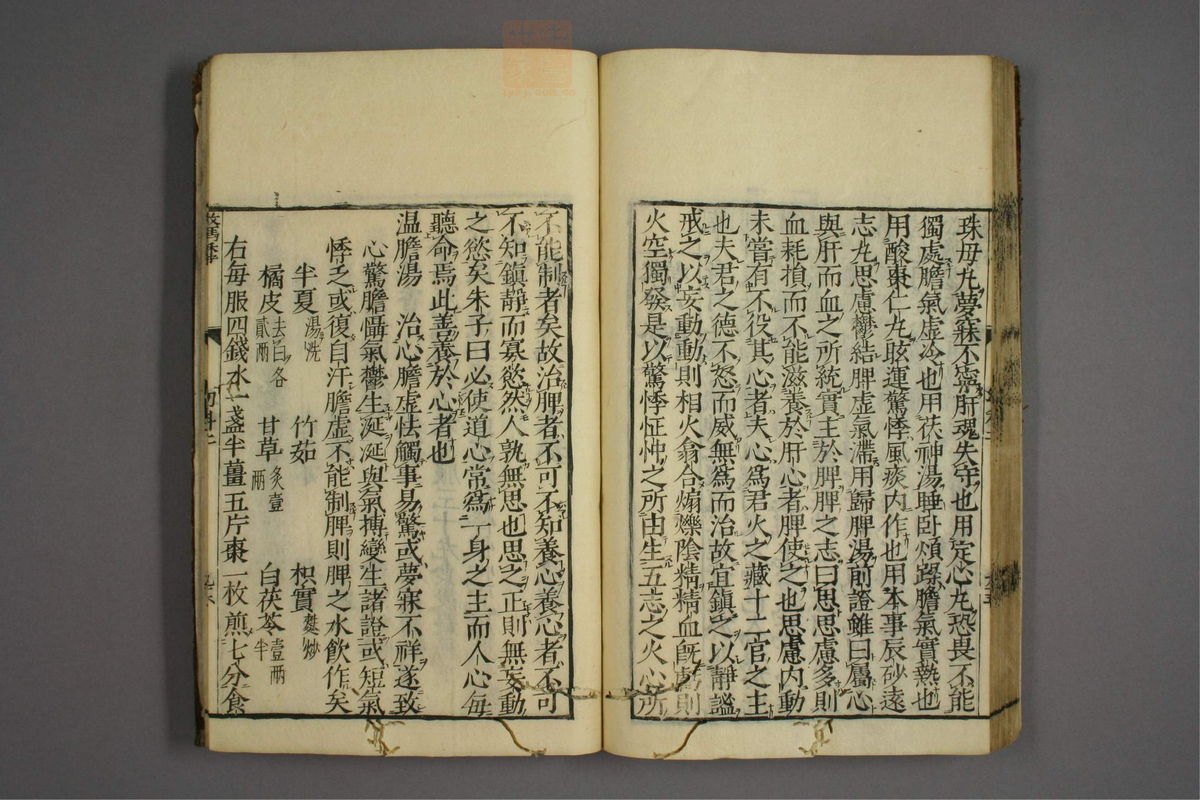 珠母丸夢寐不寧肝魂失守也用定心丸恐畏不能
獨處膽氣虛冷也用茯神湯睡臥煩躁膽氣實熱也
用酸棗仁丸眩運驚悸風痰內作也用本事辰砂遠
志丸思慮鬱結脾虛氣滯用歸脾湯前證雖曰屬心
與肝而血之所統實主於脾脾之志曰思思慮多則
血耗損而不能滋養於肝心者脾使之也思慮內動
未嘗有不役其心者夫心爲君火之藏十二官之主
也夫君之德不怒而威無爲而治故宜鎮之以靜謐
戒之以妄動動則相火翕合煽爍陰精精血既
則
火空獨發是以驚悸怔忡之所由生五志之火心所
不能制者矣故治脾者不可不知養心養心者不可
不知鎮靜而寡慾然人孰無思也思之正則無妄動
之慾矣朱子曰必使道心常爲一身之主而人心每
聽命焉此善養於心者也
温膽湯 治心膽虛怯觸事易驚或夢寐不祥遂致
心驚膽懾氣鬱生涎涎與氣搏變生諸證或短氣
悸乏或復自汗膽虛不能制脾則脾之水飲作矣
半夏湯洗 竹茹 枳實麩炒
橘皮去白各貳兩 甘草炙壹兩 白茯苓壹兩半
右每服四錢水一盞半薑五片棗一枚煎七分食